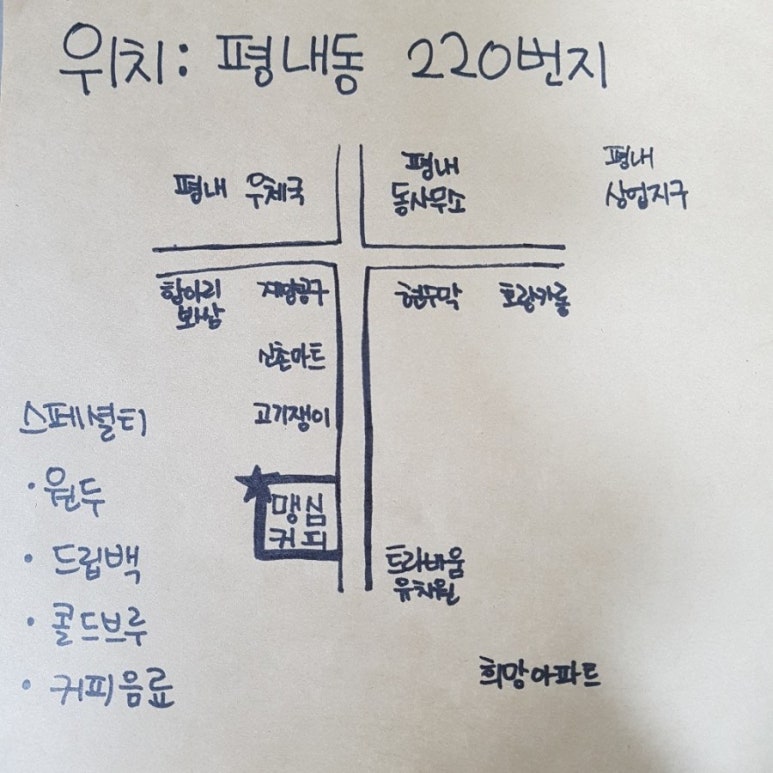 위치: 평내동 220번지
평내 우체국
평내
동사무소
평내
상업지구
항아리
보쌈
재망공구
현두막
호랑카롱
신촌마트
고기쟁이
스페셜티
• 원두
• 드립백
• 콜드브루
• 커피음료
맹심
커피
트라움
유치원
희망아파트